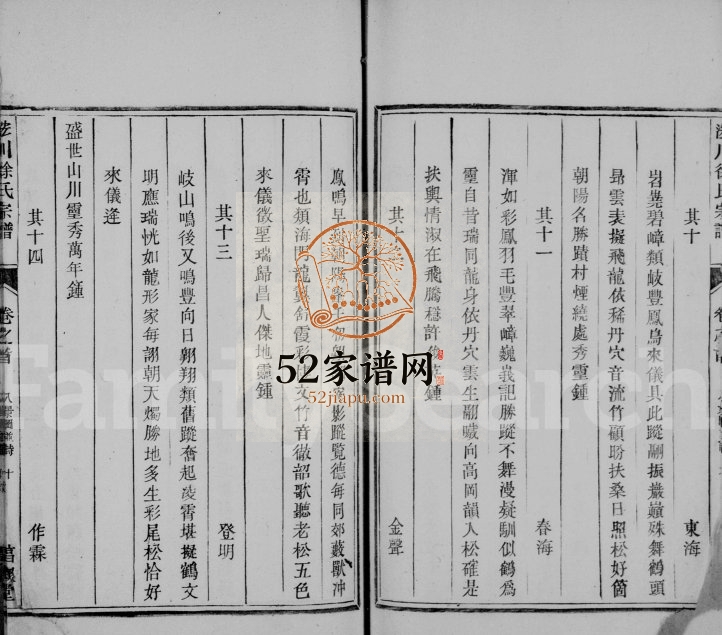 其十
東海
岩嶤碧嶂類岐豐鳳鳥來儀具此蹤翩振巖巔殊舞鶴頭
昻雲表擬飛龍依稀丹穴音流竹顧盼扶桑日照松好箇
朝陽名勝蹟村煙繞處秀靈鍾
其十一
春海
渾如彩鳳羽毛豐翠嶂巍峩記勝蹤不舞漫疑馴似鶴爲
靈自昔瑞同龍身依丹穴雲生翩曦向高岡韻人松確是
扶輿情淑在飛騰穩許
鍾
其十
金聲
鳳鳴早
影蹤覽德每同郊藪獸冲
霄也類海
龍
舒霞彩
文竹音徹韶歌聽老松五色
來儀徵聖瑞歸昌人傑地靈鍾
其十三
登明
岐山鳴後又鳴豐向日翺翔類舊蹤奮起凌霄堪擬鶴文
明應瑞恍如龍形家每謝朝天燭勝地多生彩尾松恰好
來儀逢
盛世山川靈秀萬年鍾
其十四
作霖
川徐氏宗譜
卷之首
52家谱网
52jiapu.com
FamilySearch